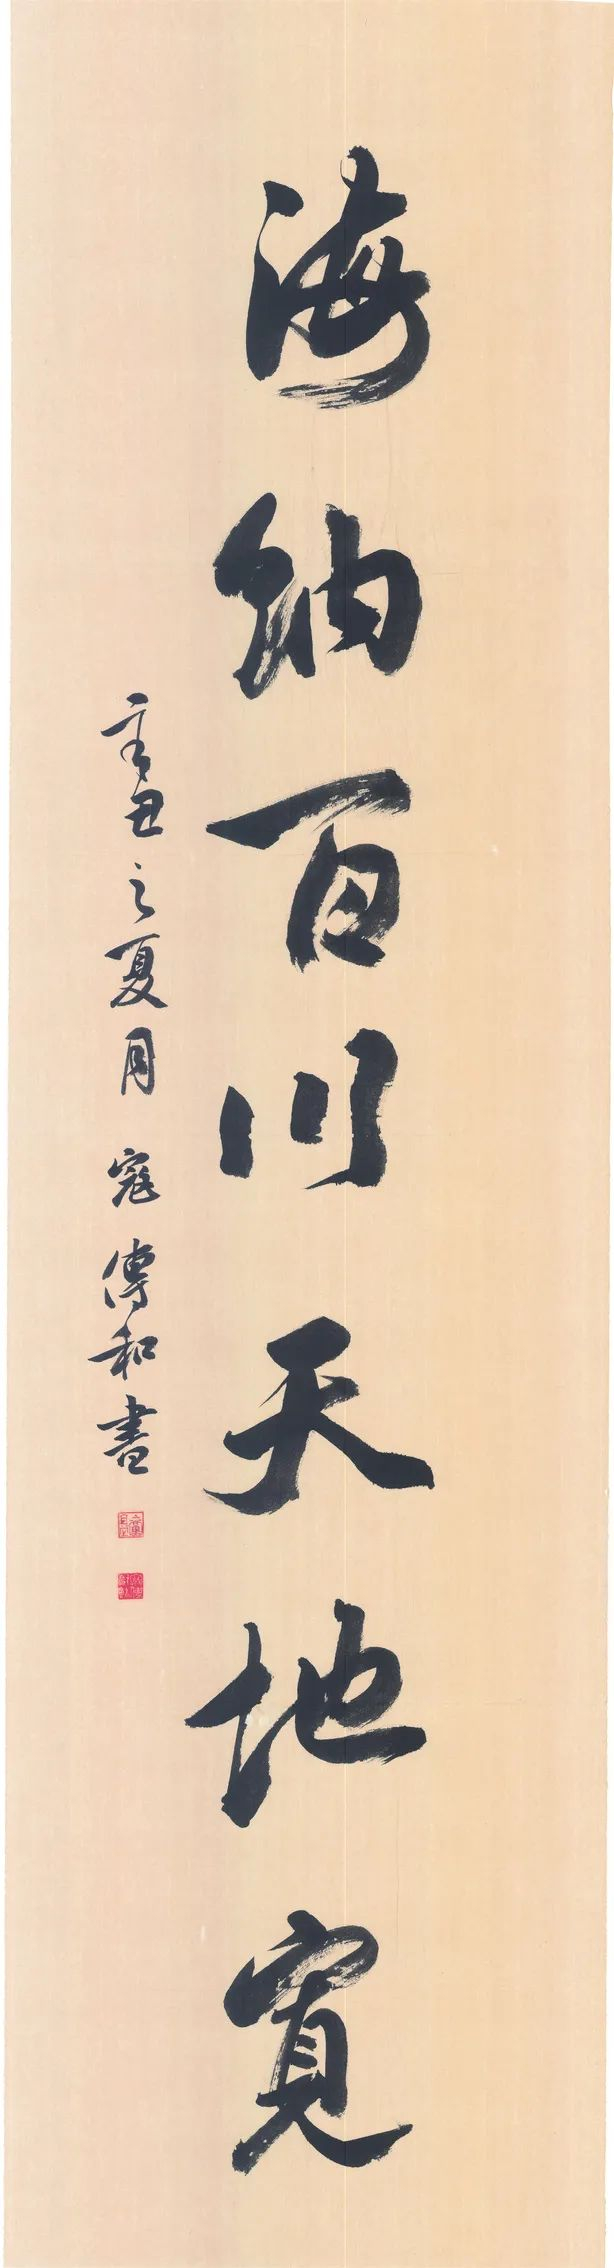 海納百川天地寬
辛丑之夏月 寇傳和書